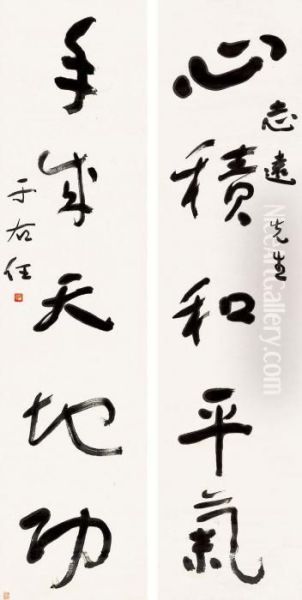 心積和平氣
志遠先生
手成天地功
于右任
NiceArtGallery.com